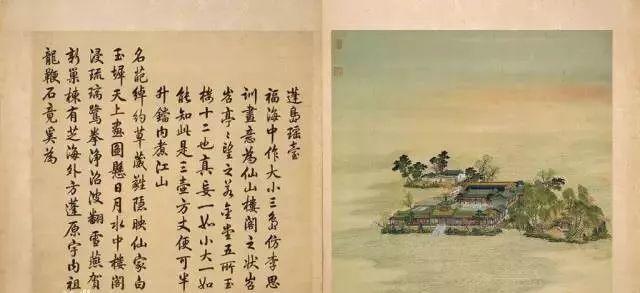 蓬島瑶臺
福海中作大小三島倣李思
訓畫意為仙山樓閣之状岧
岧亭〻望之若金堂五所玉
樓十二也真妄一如小大一如
能知此是三壺方丈便可半
升鐺内煮江山
名葩綽約草葳蕤隠映仙家白
玉墀天上畫圖懸日月水中樓閣
浸琉璃鷺拳淨沼波翻雪燕賀
新巢棟有芝海外方蓬原宇内祖
龍鞭石竟奚為